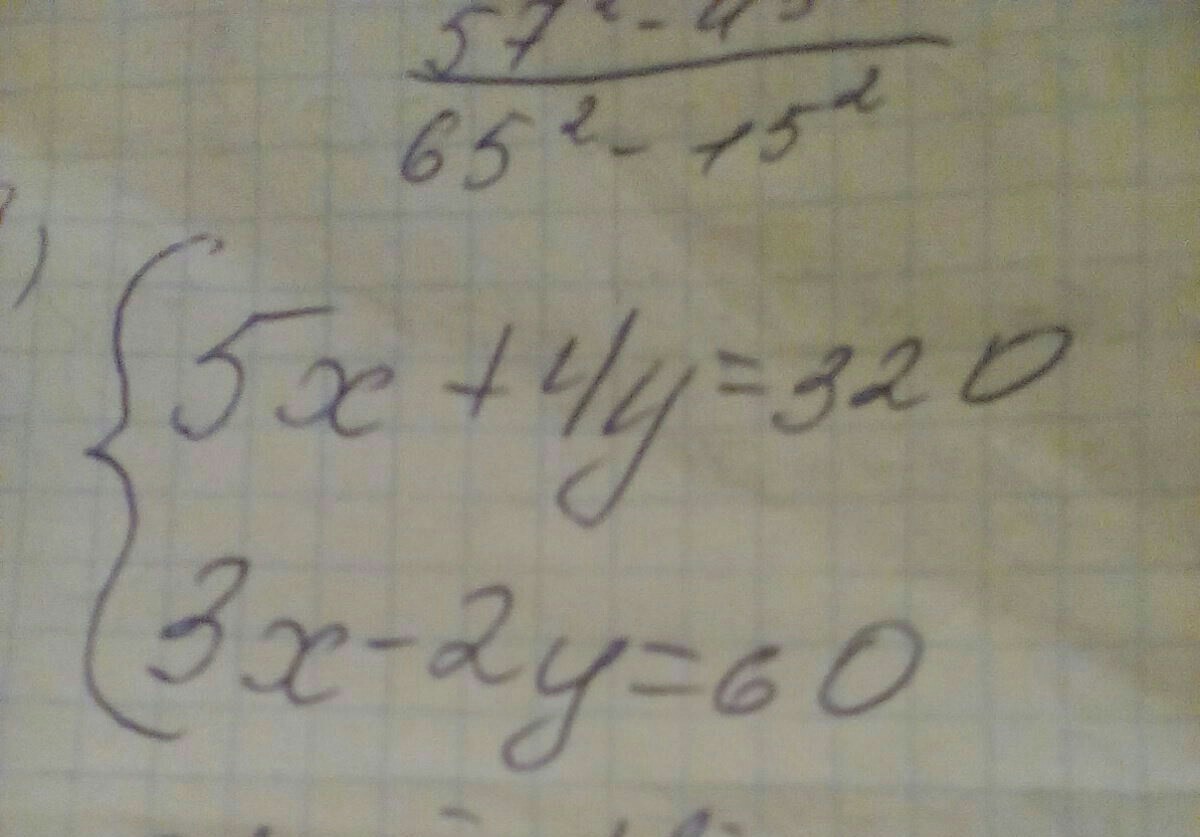 57² - 4
65² - 15²
)
5x + 4y = 320
3x - 2y = 60